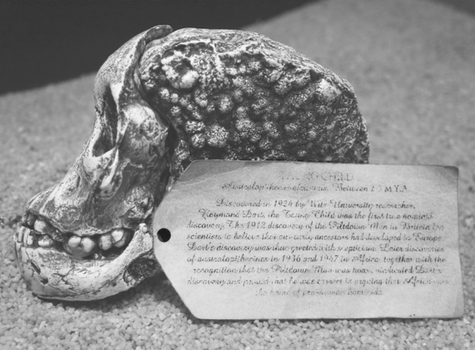 TAUNG CHILD
Australopithecus africanus Between M.Y.A.
Discovered in 1924 by Wits University researcher,
Raymond Dart, the Taung Child was the first two hominid
discovery. The 1912 discovery of the Piltdown Man in Britain led
scientists to believe that our early ancestors had developed in Europe.
Dart's discovery was thus greeted with scepticism. Later discoveries
of australopithecines in 1936 and 1947 in Africa, together with the
recognition that the Piltdown Man was hoax, vindicated Dart's
discovery and proved him correct in arguing that Africa was
the home of